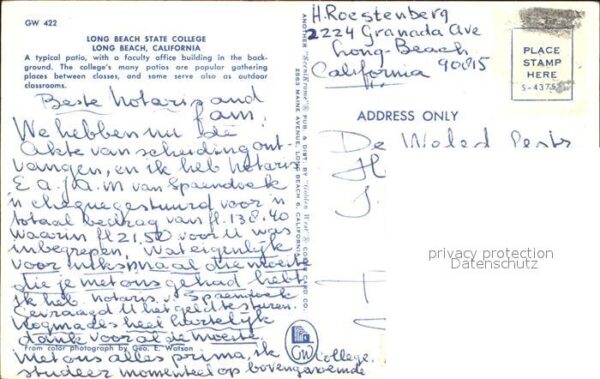 GW 422
LONG BEACH STATE COLLEGE
LONG BEACH, CALIFORNIA
A typical patio, with a faculty office building in the back-
ground. The college's many patios are popular gathering
places between classes, and some serve also as outdoor
classrooms.
Beste Notaris and
fam.
We hebben nu de
Akte van scheiding ont-
vangen, en ik heb notaris
E.a.f.a.m van Spaendoek
'n cheque gestuurd voor 'n
totaal bedrag van fl. 138.40
waarin fl 21,50 voor U was
inbegrepen. Wat eigenlijk
voor
de moeite
die je met ons gehad hebt
ik heb notaris v. Spaendoek
gevraagd U het geld te sturen.
Nogmaals heel hartelijk
dank voor al de moeite.
From color photograph by Geo. E. Watson
Met ons alles prima, ik
studeer momenteel op bovengenoemde
College.
GW
ANOTHER "Scenichrome" PUB. & DIST. BY Golden West COLOR CARD CO.
2885 MAINE AVENUE, LONG BEACH 6, CALIFORNIA
H. Roestenberg
2224 Granada Ave
Long-Beach
California 90815
PLACE
STAMP
HERE
S-4375
ADDRESS ONLY
De
privacy protection
Datenschutz